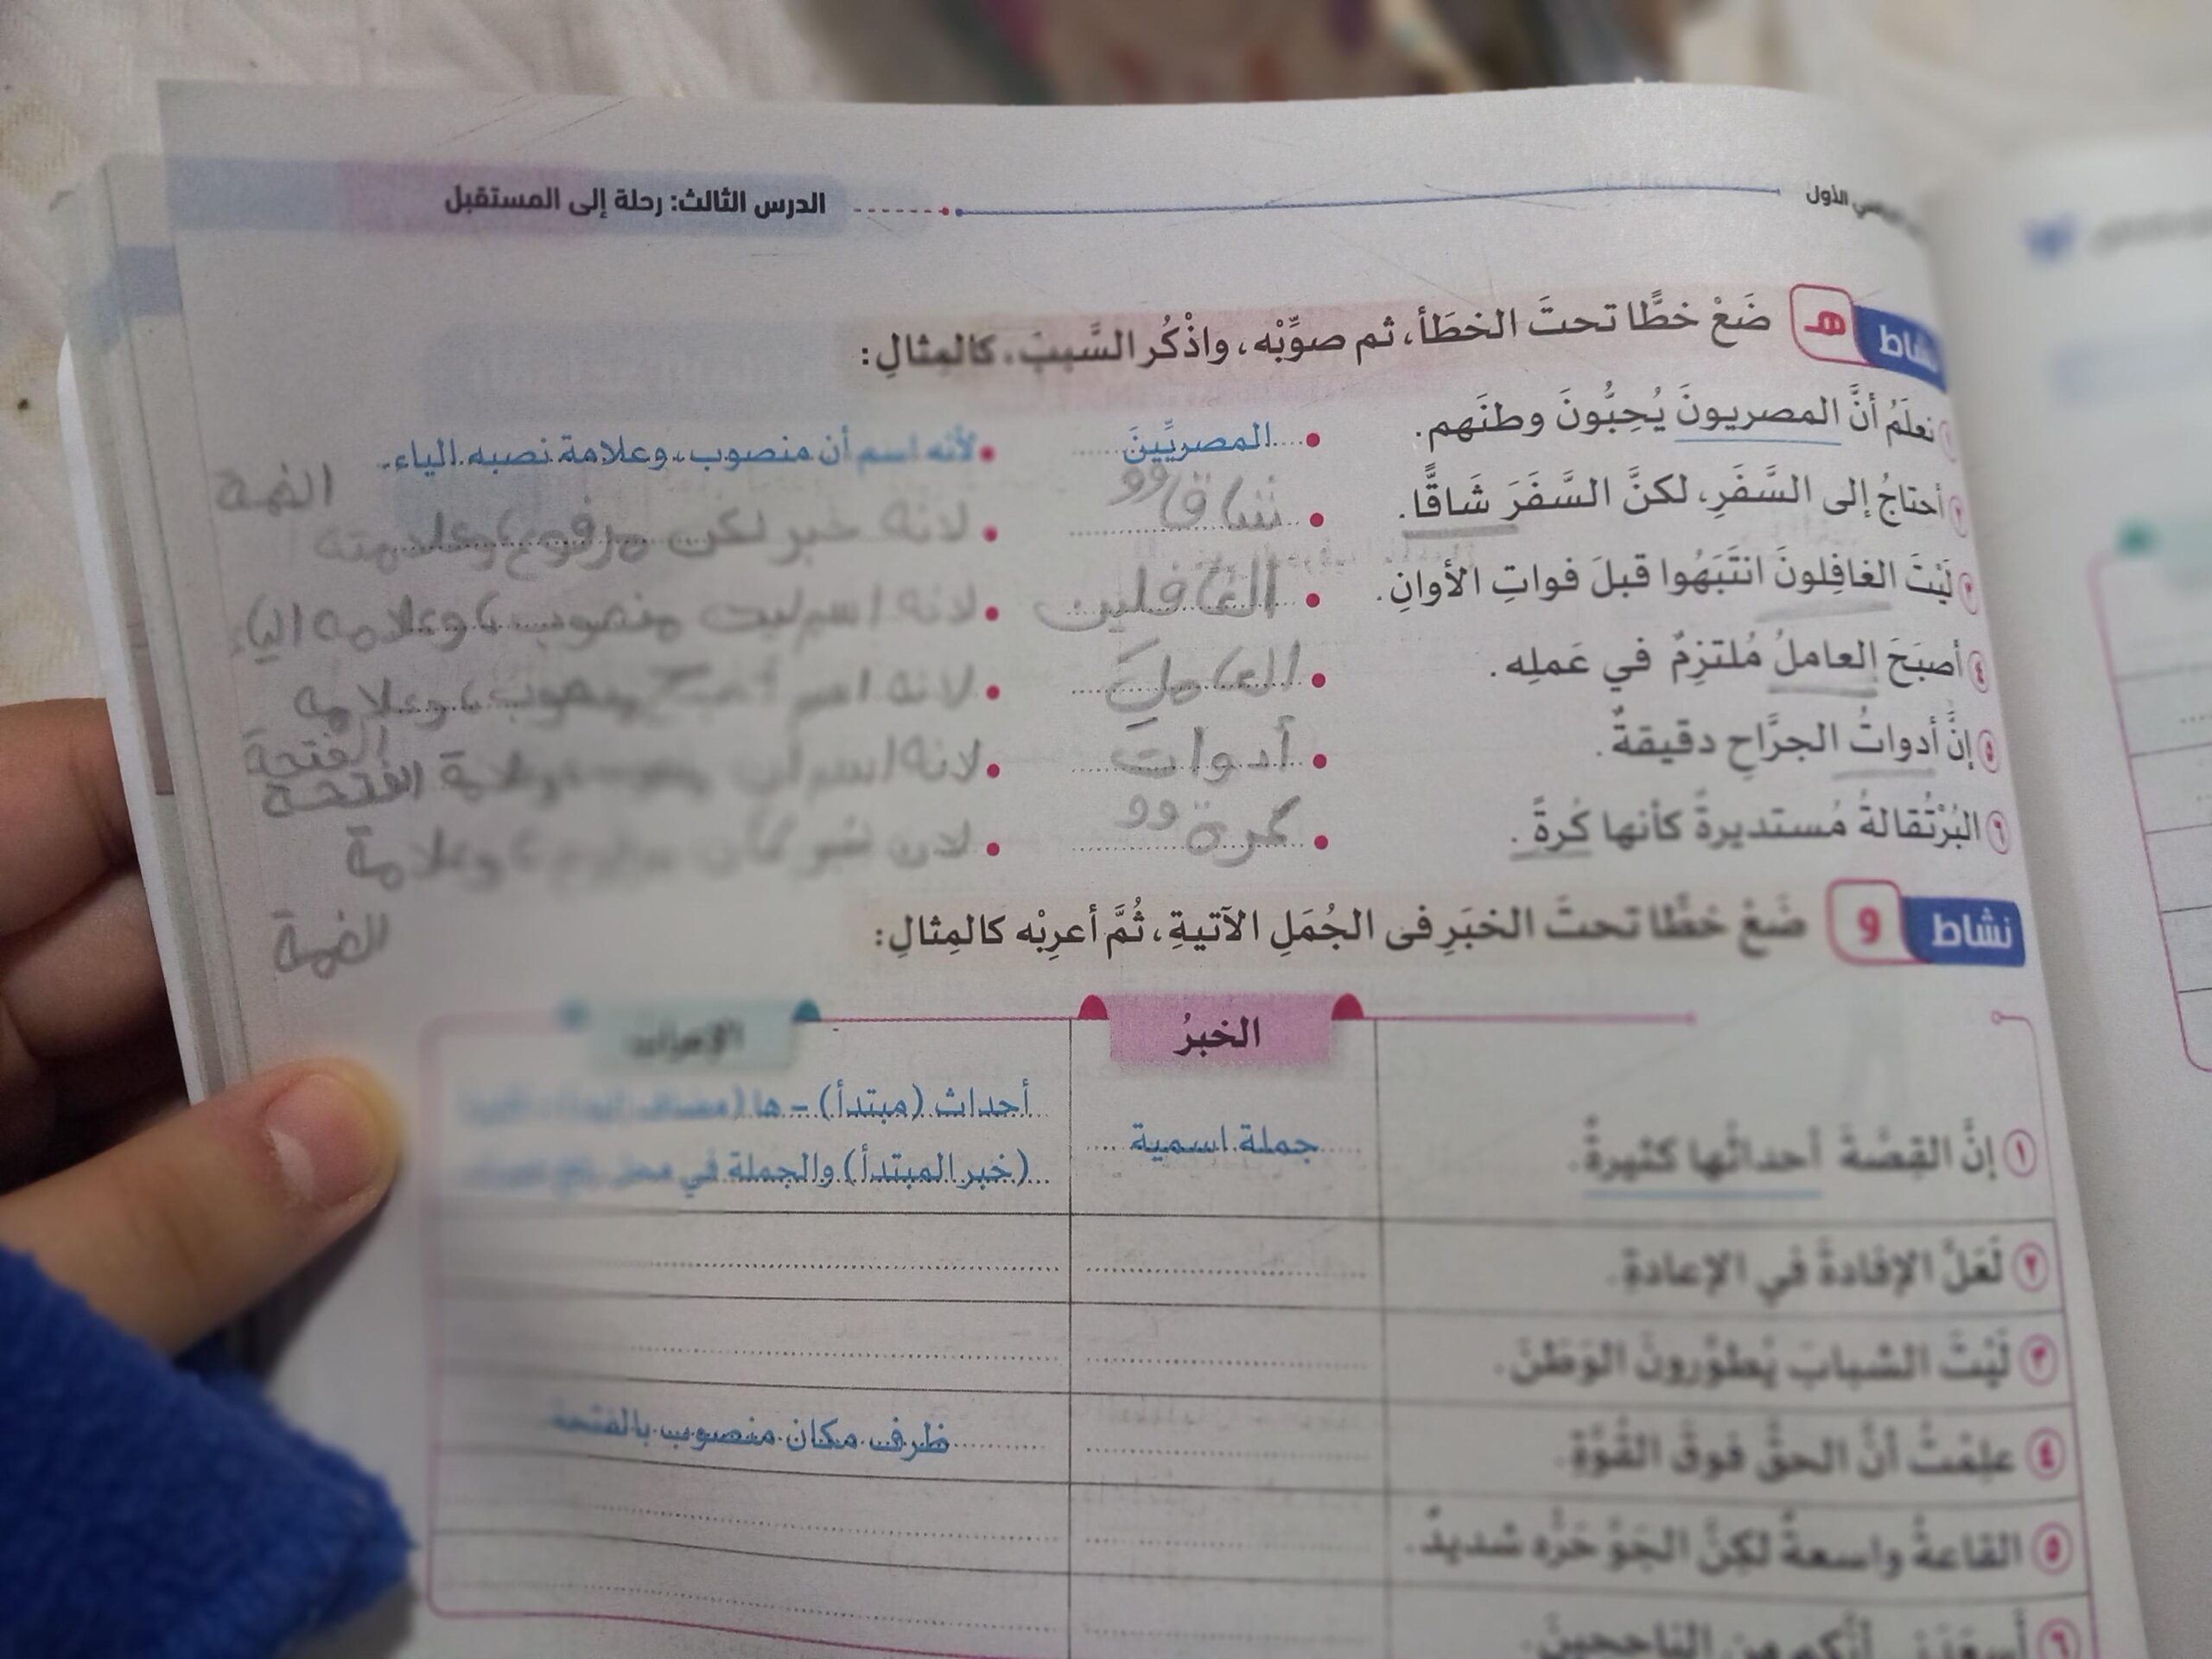 الأول
الدرس الثالث: رحلة إلى المستقبل
نشاط هـ ضَعْ خطًّا تحتَ الخطَأ، ثم صوِّبْه، واذْكُر السَّببَ، كالمِثالِ:
نعلَمُ أنَّ المصريونَ يُحِبُّونَ وطنَهم. المصريِّينَ لأنه اسم أن منصوب، وعلامة نصبه الياء.
٢ أحتاجُ إلى السَّفَرِ، لكنَّ السَّفَرَ شَاقًّا. شاقٌ لانه خبر لكن مرفوع، وعلامته الضمة
٣ لَيْتَ الغافِلونَ انتَبَهُوا قبلَ فواتِ الأوانِ. الغافلين لانه اسم ليت منصوب، وعلامه الياء
٤ أصبَحَ العاملُ مُلتزِمٌ في عَملِه. العاملَ لانه اسم أصبح منصوب، وعلامه الفتحة
٥ إنَّ أدواتُ الجرَّاحِ دقيقةٌ. أدواتَ لانه اسم إن وعلامة الفتحة
٦ البُرْتُقالةُ مُستديرةٌ كأنها كُرةً. كرةٌ لان خبر كأن مرفوع، وعلامة الضمة
نشاط و ضَعْ خطًّا تحتَ الخبَرِ فى الجُمَلِ الآتيةِ، ثُمَّ أعرِبْه كالمِثالِ:
الخبرُ الإعراب
١ إنَّ القِصَّةَ أحداثُها كثيرةٌ. جملة اسمية أحداث (مبتدأ) - ها (مضاف إليه)
(خبر المبتدأ) والجملة في محل رفع
٢ لَعَلَّ الإفادةَ في الإعادةِ.
٣ لَيْتَ الشبابَ يُطوِّرونَ الوَطَنَ.
٤ علِمْتُ أنَّ الحقَّ فوقَ القُوَّةِ. ظرف مكان منصوب بالفتحة
٥ القاعةُ واسعةٌ لكِنَّ الجَوَّ حَرُّه شديدٌ.
٦ أنَّكم من الناجحينَ.